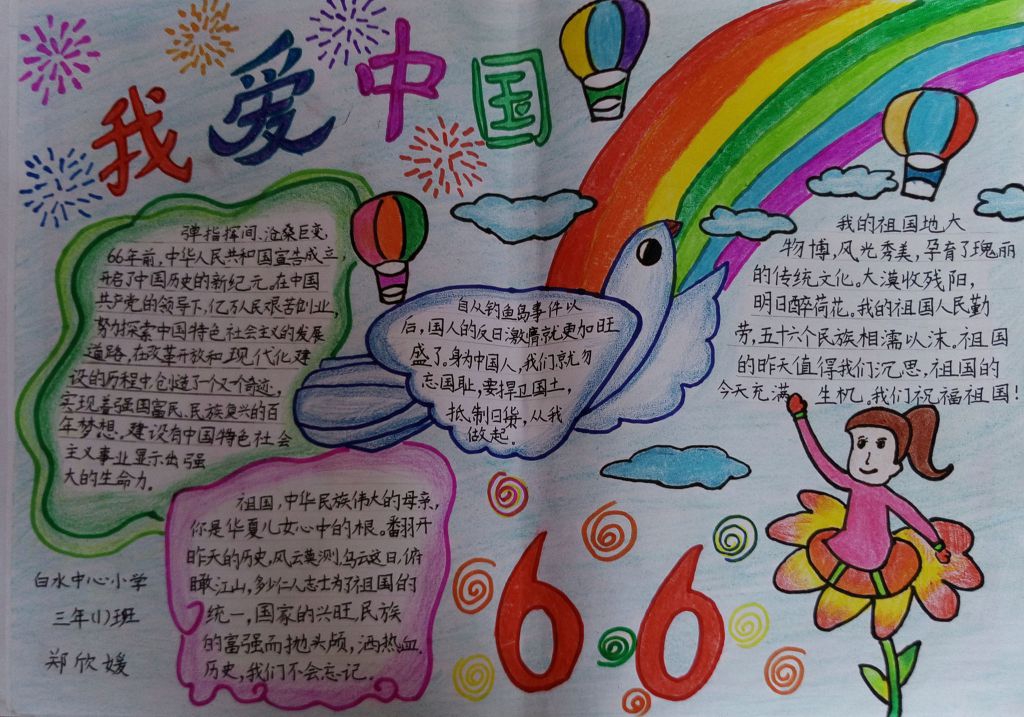 我爱中国
弹指挥间、沧桑巨变
66年前,中华人民共和国宣告成立,
开启了中国历史的新纪元。在中国
共产党的领导下,亿万人民艰苦创业,
努力探索中国特色社会主义的发展
道路,在改革开放和现代化建
设的历程中,创造了一个又一个奇迹,
实现着强国富民、民族复兴的百
年梦想。建设有中国特色社会
主义事业显示出强
大的生命力。
自从钓鱼岛事件以
后,国人的反日激情就更加旺
盛了。身为中国人,我们就勿
忘国耻,要捍卫国土,
抵制日货,从我
做起。
我的祖国地大
物博,风光秀美,孕育了瑰丽
的传统文化。大漠收残阳,
明日醉荷花。我的祖国人民勤
劳,五十六个民族相濡以沫。祖国
的昨天值得我们沉思,祖国的
今天充满生机,我们祝福祖国!
祖国,中华民族伟大的母亲,
你是华夏儿女心中的根。翻开
昨天的历史,风云莫测乌云这日,俯
瞰江山,多少仁人志士为了祖国的
统一,国家的兴旺,民族
的富强而抛头颅,洒热血。
历史,我们不会忘记。
66
白水中心小学
三年(1)班
郑欣媛